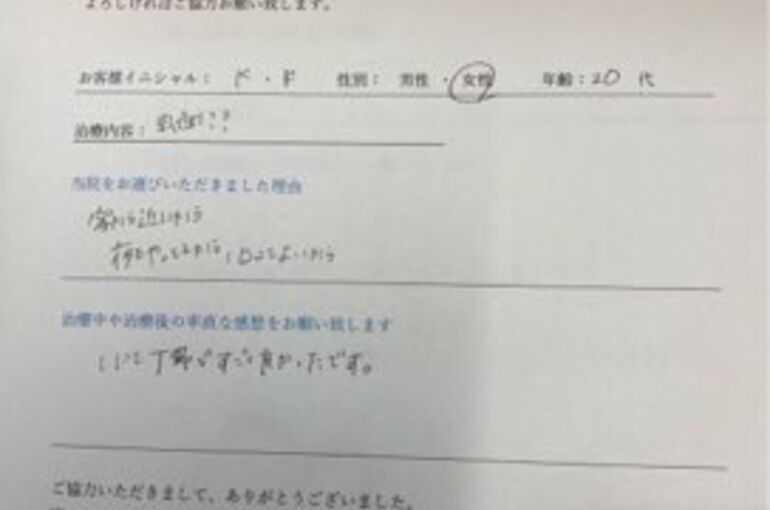 よろしければご協力お願い致します。
お客様イニシャル： K ・ F 性別： 男性 ・ 女性 年齢：20 代
治療内容： ??
当院をお選びいただきました理由
家から近いから
治療中や治療後の率直な感想をお願い致します
丁寧ですごく良かったです。
ご協力いただきまして、ありがとうございました。